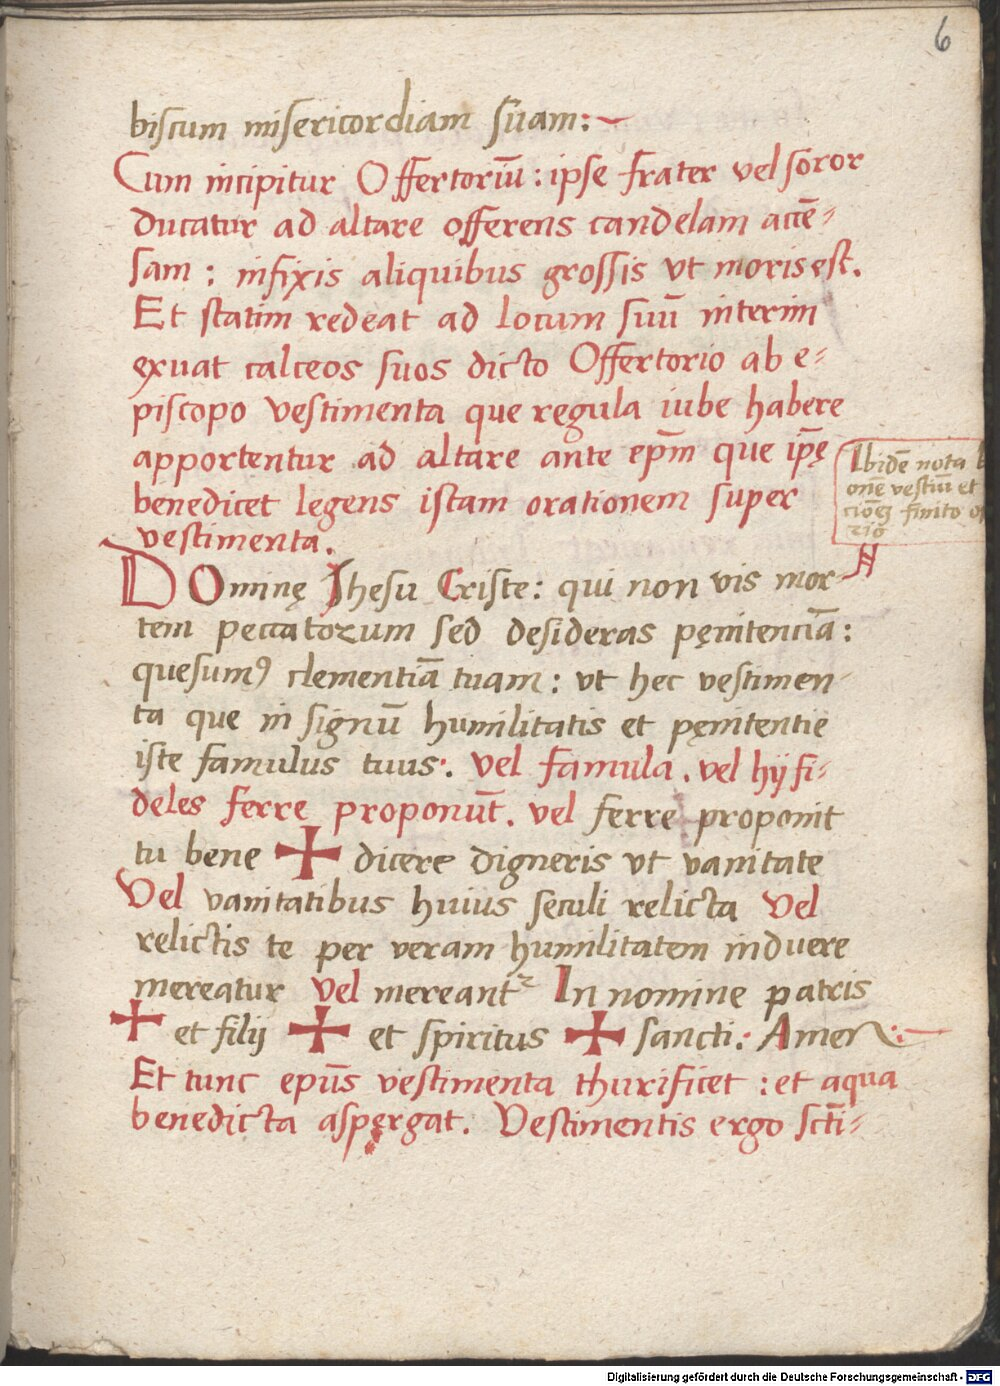 6
biscum misericordiam suam:~
Cum incipitur Offertoriū: ipse frater vel soror
ducatur ad altare offerens candelam accē-
sam: infixis aliquibus grossis vt moris est.
Et statim redeat ad locum suū interim
exuat calceos suos dicto Offertorio ab e-
piscopo vestimenta que regula iube habere
apportentur ad altare ante ep̄m que ip̄ę
benedicet legens istam orationem super
vestimenta.
Ibidē nota
onē vestiu et
finito
DOminę Jhesu Criste: qui non vis mor-
tem peccatorum sed desideras pęnitenciā:
quesumꝰ clementiā tuam: vt hec vestimen-
ta que in signū humilitatis et pęnitentie
iste famulus tuus. vel famula. vel hij fi-
deles ferre proponūt. vel ferre proponit
tu bene ✠ dicere digneris vt vanitate
Vel vanitatibus huius seculi relicta Vel
relictis te per veram humilitatem induere
mereatur vel mereant᷑ In nomine patris
✠ et filij ✠ et spiritus ✠ sancti. Amen:~
Et tunc epūs vestimenta thurificet: et aqua
benedicta aspęrgat. Vestimentis ergo sctī-
Digitalisierung gefördert durch die Deutsche Forschungsgemeinschaft - DFG